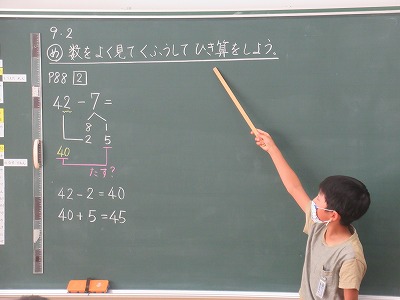 9.2
め 数をよく見てくふうしてひき算をしよう。
P88 2
42-7=
8 1
2 5
40
たす?
42-2=40
40+5=45